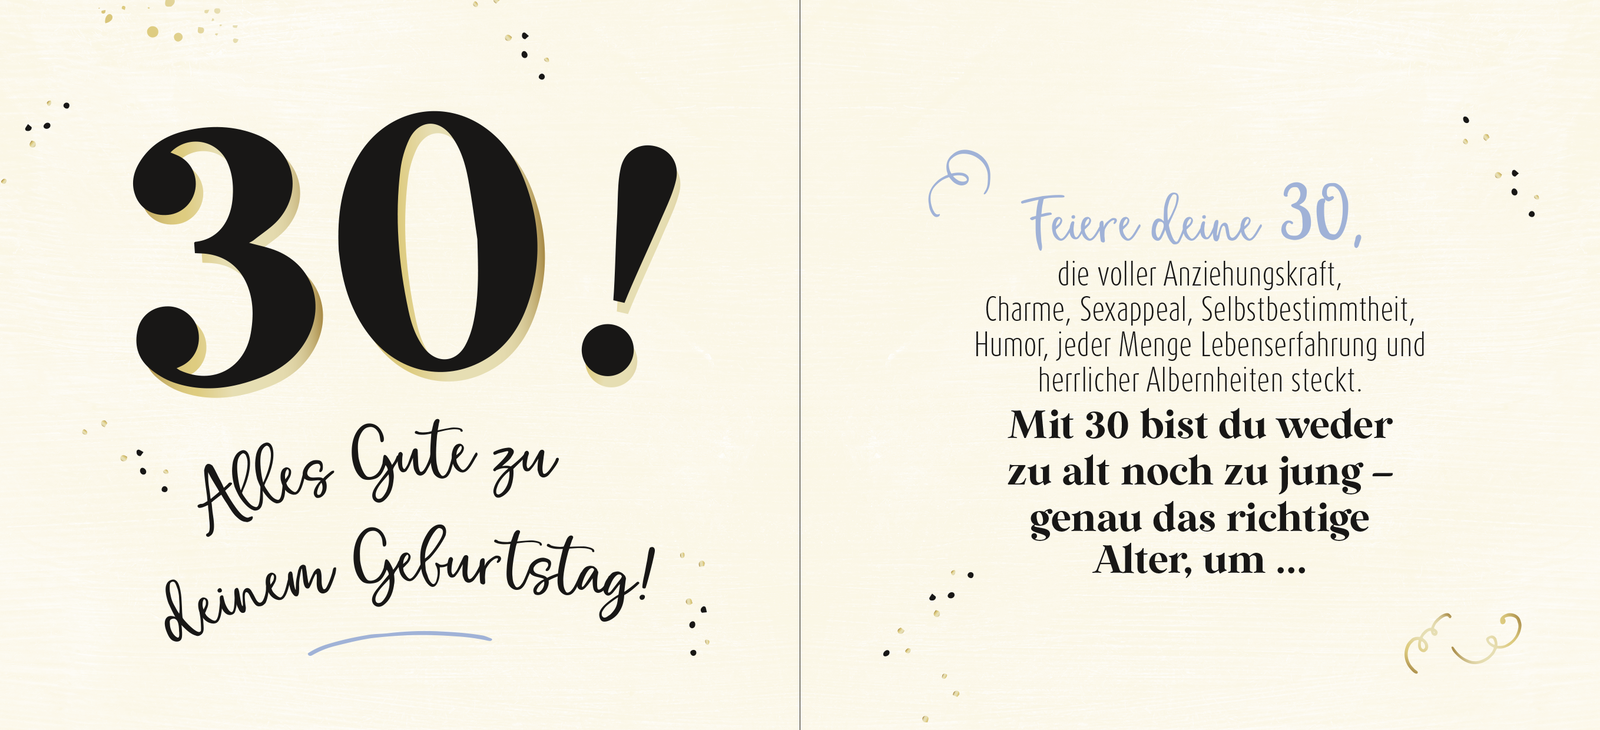 30!
Alles Gute zu
deinem Geburtstag!
Feiere deine 30,
die voller Anziehungskraft,
Charme, Sexappeal, Selbstbestimmtheit,
Humor, jeder Menge Lebenserfahrung und
herrlicher Albernheiten steckt.
Mit 30 bist du weder
zu alt noch zu jung –
genau das richtige
Alter, um ...